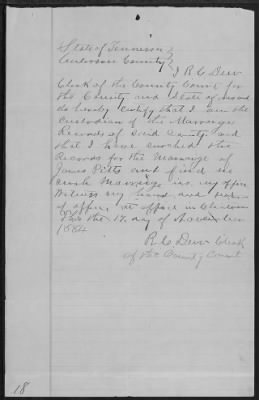 State of Tennessee }
Anderson County }
I R C Dew
Clerk of the County Court for
the County and State aforesaid
do hereby certify that I am the
custodian of the Marriage
Records of said County and
that I have searched the
Records for the Marriage of
James Pitts and find no
such Marriage in my office
Witness my hand and seal
of office at office in Clinton
this the 17 day of November
1884
R C Dew Clerk
of the County Court
18